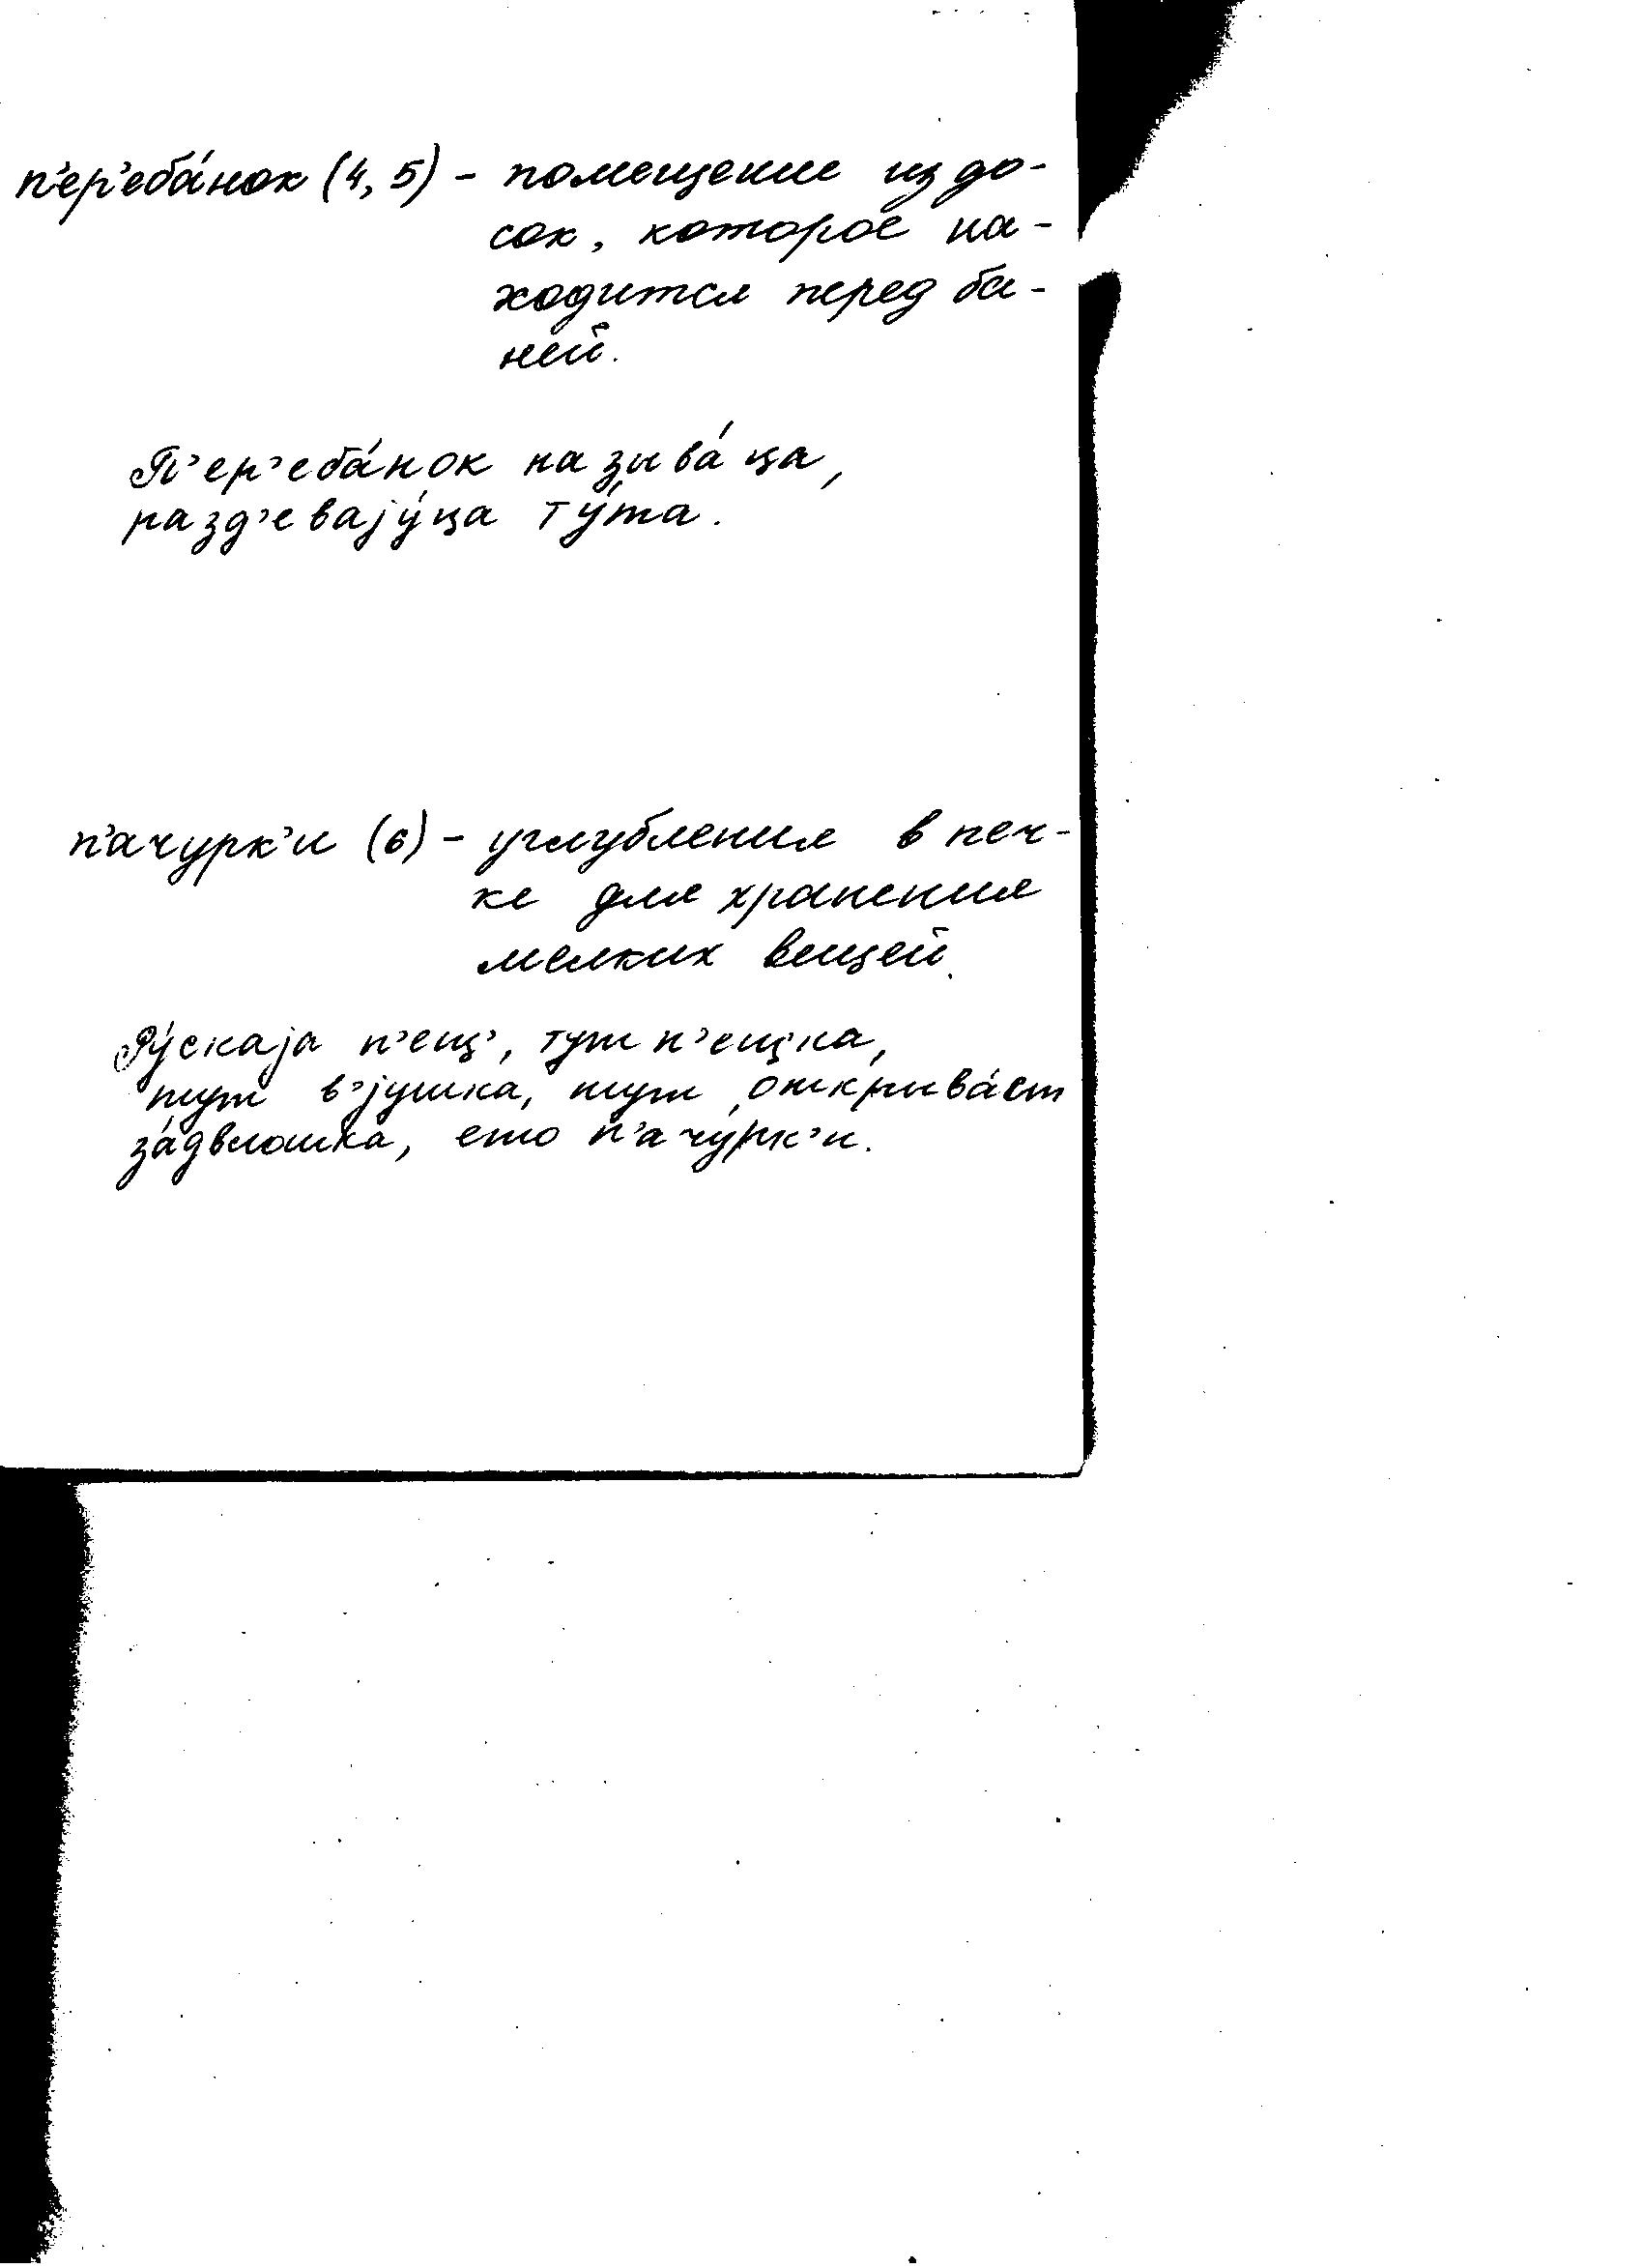 п'ер'еба́нок (4, 5) – помещение из до-
сок, которое на-
ходится перед ба-
ней.
П'ер'еба́нок называ́ца,
разд'евајýца тýта.
п'ачурк'и (6) – углубления в печ-
ке для хранения
мелких вещей.
Рýскаја п'ещ', тут п'ещ'ка,
тут в'јушка, тут открыва́ет
за́двюшка, ето п'ачýрк'и.